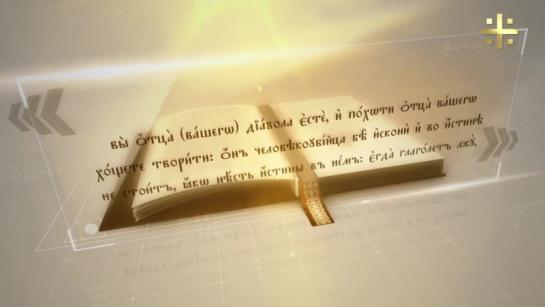 вы̀ ѻ҆тца̀ (ва́шегѡ) дїа́вола є҆стѐ, и҆ по́хѡти ѻ҆тца̀ ва́шегѡ
хо́щете твори́ти: ѻ҆́нъ человѣкоꙋбі́йца бѣ̀ и҆сконѝ и҆ во и҆́стинѣ
не стои́тъ, ꙗ҆́кѡ нѣ́сть и҆́стины въ не́мъ: є҆гда̀ глаго́летъ лжꙋ̀,